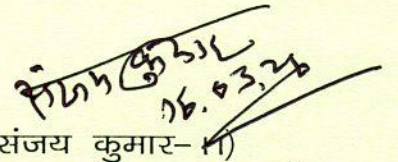 संजय कुमार
16.03.20
संजय कुमार-II)